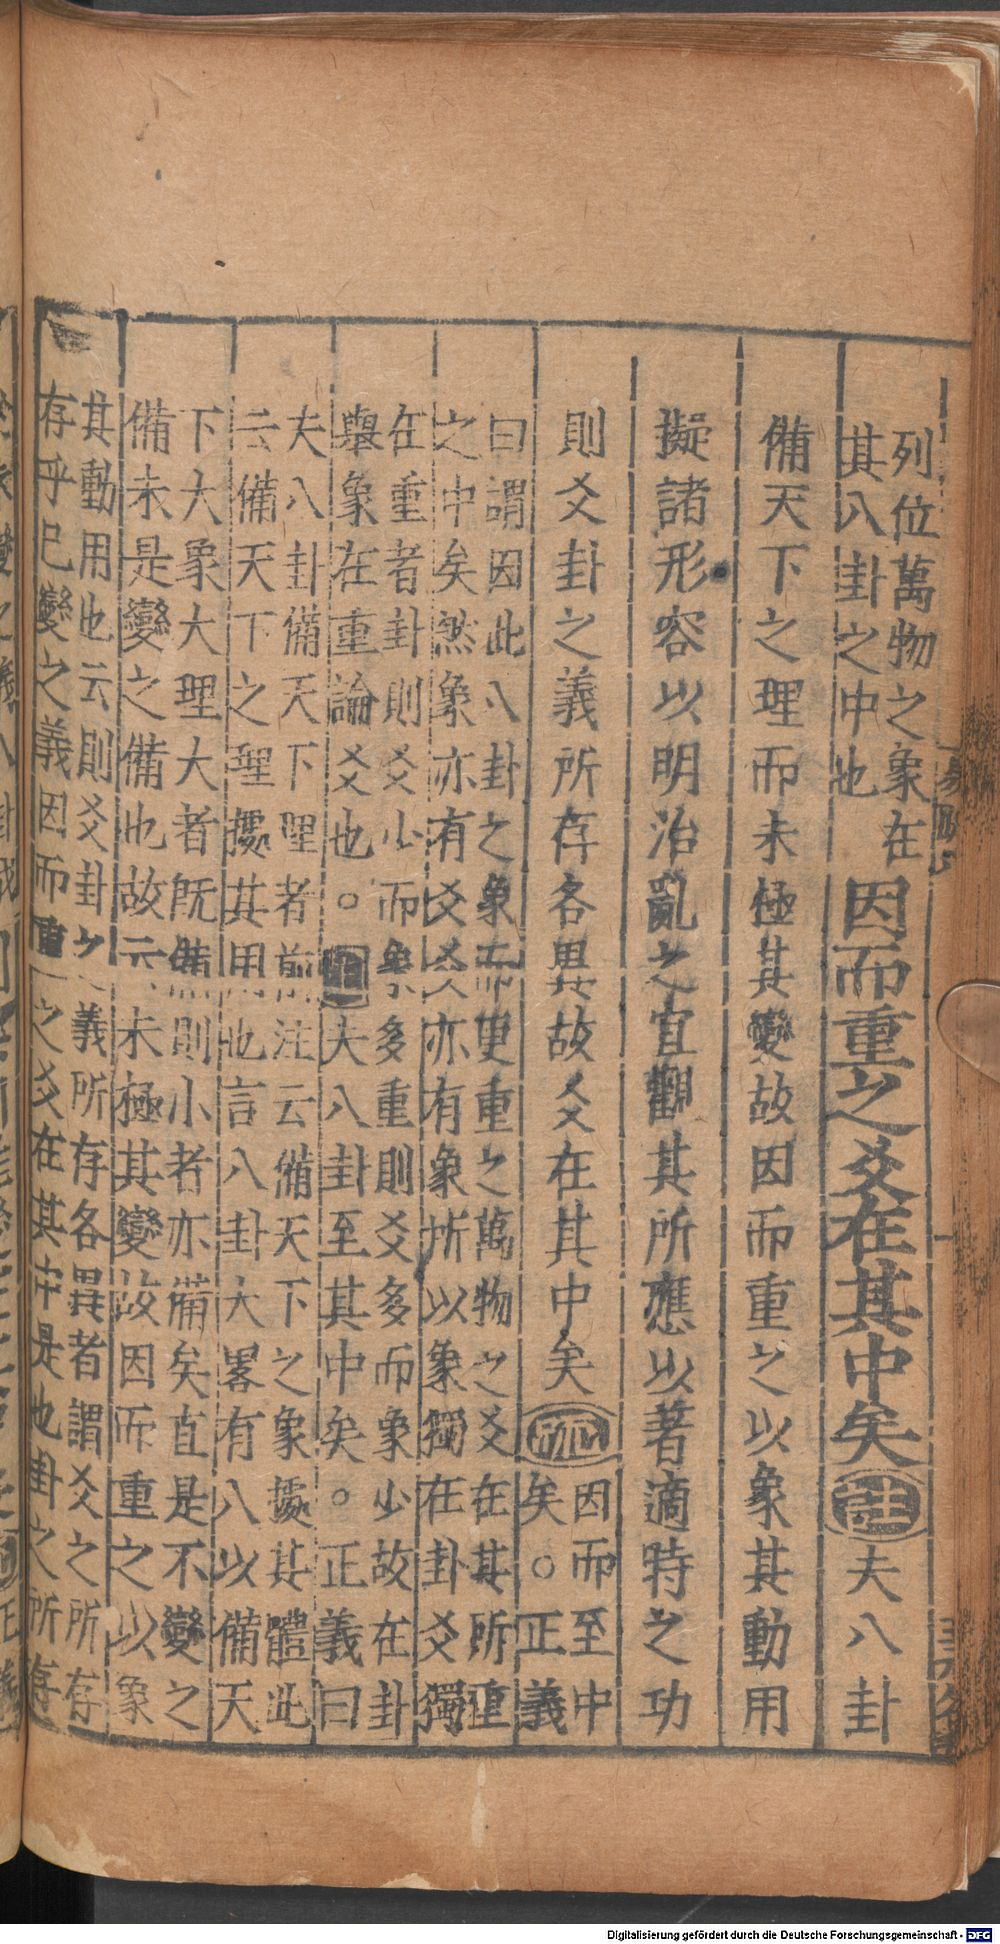 列位萬物之象在
其八卦之中也
因而重之爻在其中矣註夫八卦
備天下之理而未極其變故因而重之以象其動用
擬諸形容以明治亂之宜觀其所應以著適時之功
則爻卦之義所存各異故爻在其中矣疏
因而至中
矣。正義
曰謂因此八卦之象而更重之萬物之爻在其所重
之中矣然象亦有爻爻亦有象所以象獨在卦爻獨
在重者卦則爻少而象多重則爻多而象少故在卦
舉象在重論爻也。注夫八卦至其中矣。正義曰
夫八卦備天下理者前注云備天下之象據其體此
云備天下之理據其用也言八卦大畧有八以備天
下大象大理大者既備則小者亦備矣直是不變之
備未是變之備也故云未極其變故因而重之以象
其動用也云則爻卦之義所存各異者謂爻之所存
存乎已變之義因而重之爻在其中是也卦之所存
Digitalisierung gefördert durch die Deutsche Forschungsgemeinschaft - DFG